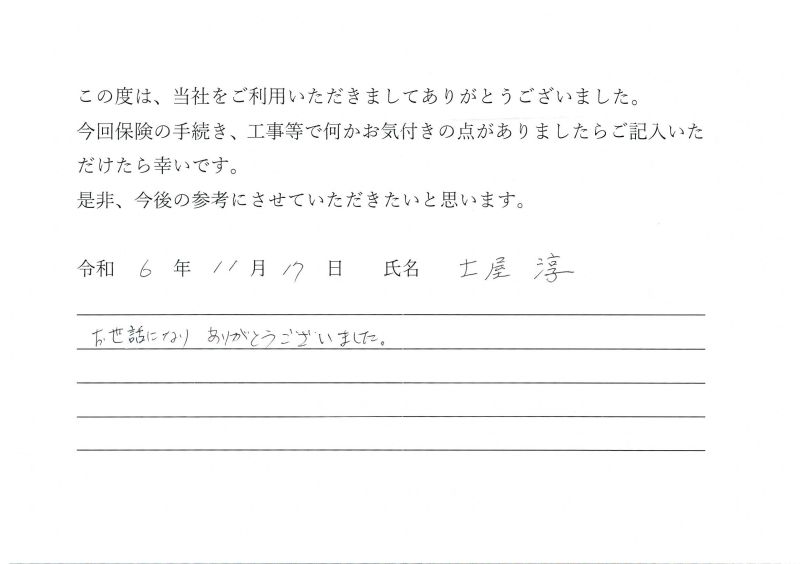 この度は、当社をご利用いただきましてありがとうございました。
今回保険の手続き、工事等で何かお気付きの点がありましたらご記入いた
だけたら幸いです。
是非、今後の参考にさせていただきたいと思います。
令和 6 年 11 月 17 日 氏名 土屋 淳
お世話になり ありがとうございました。